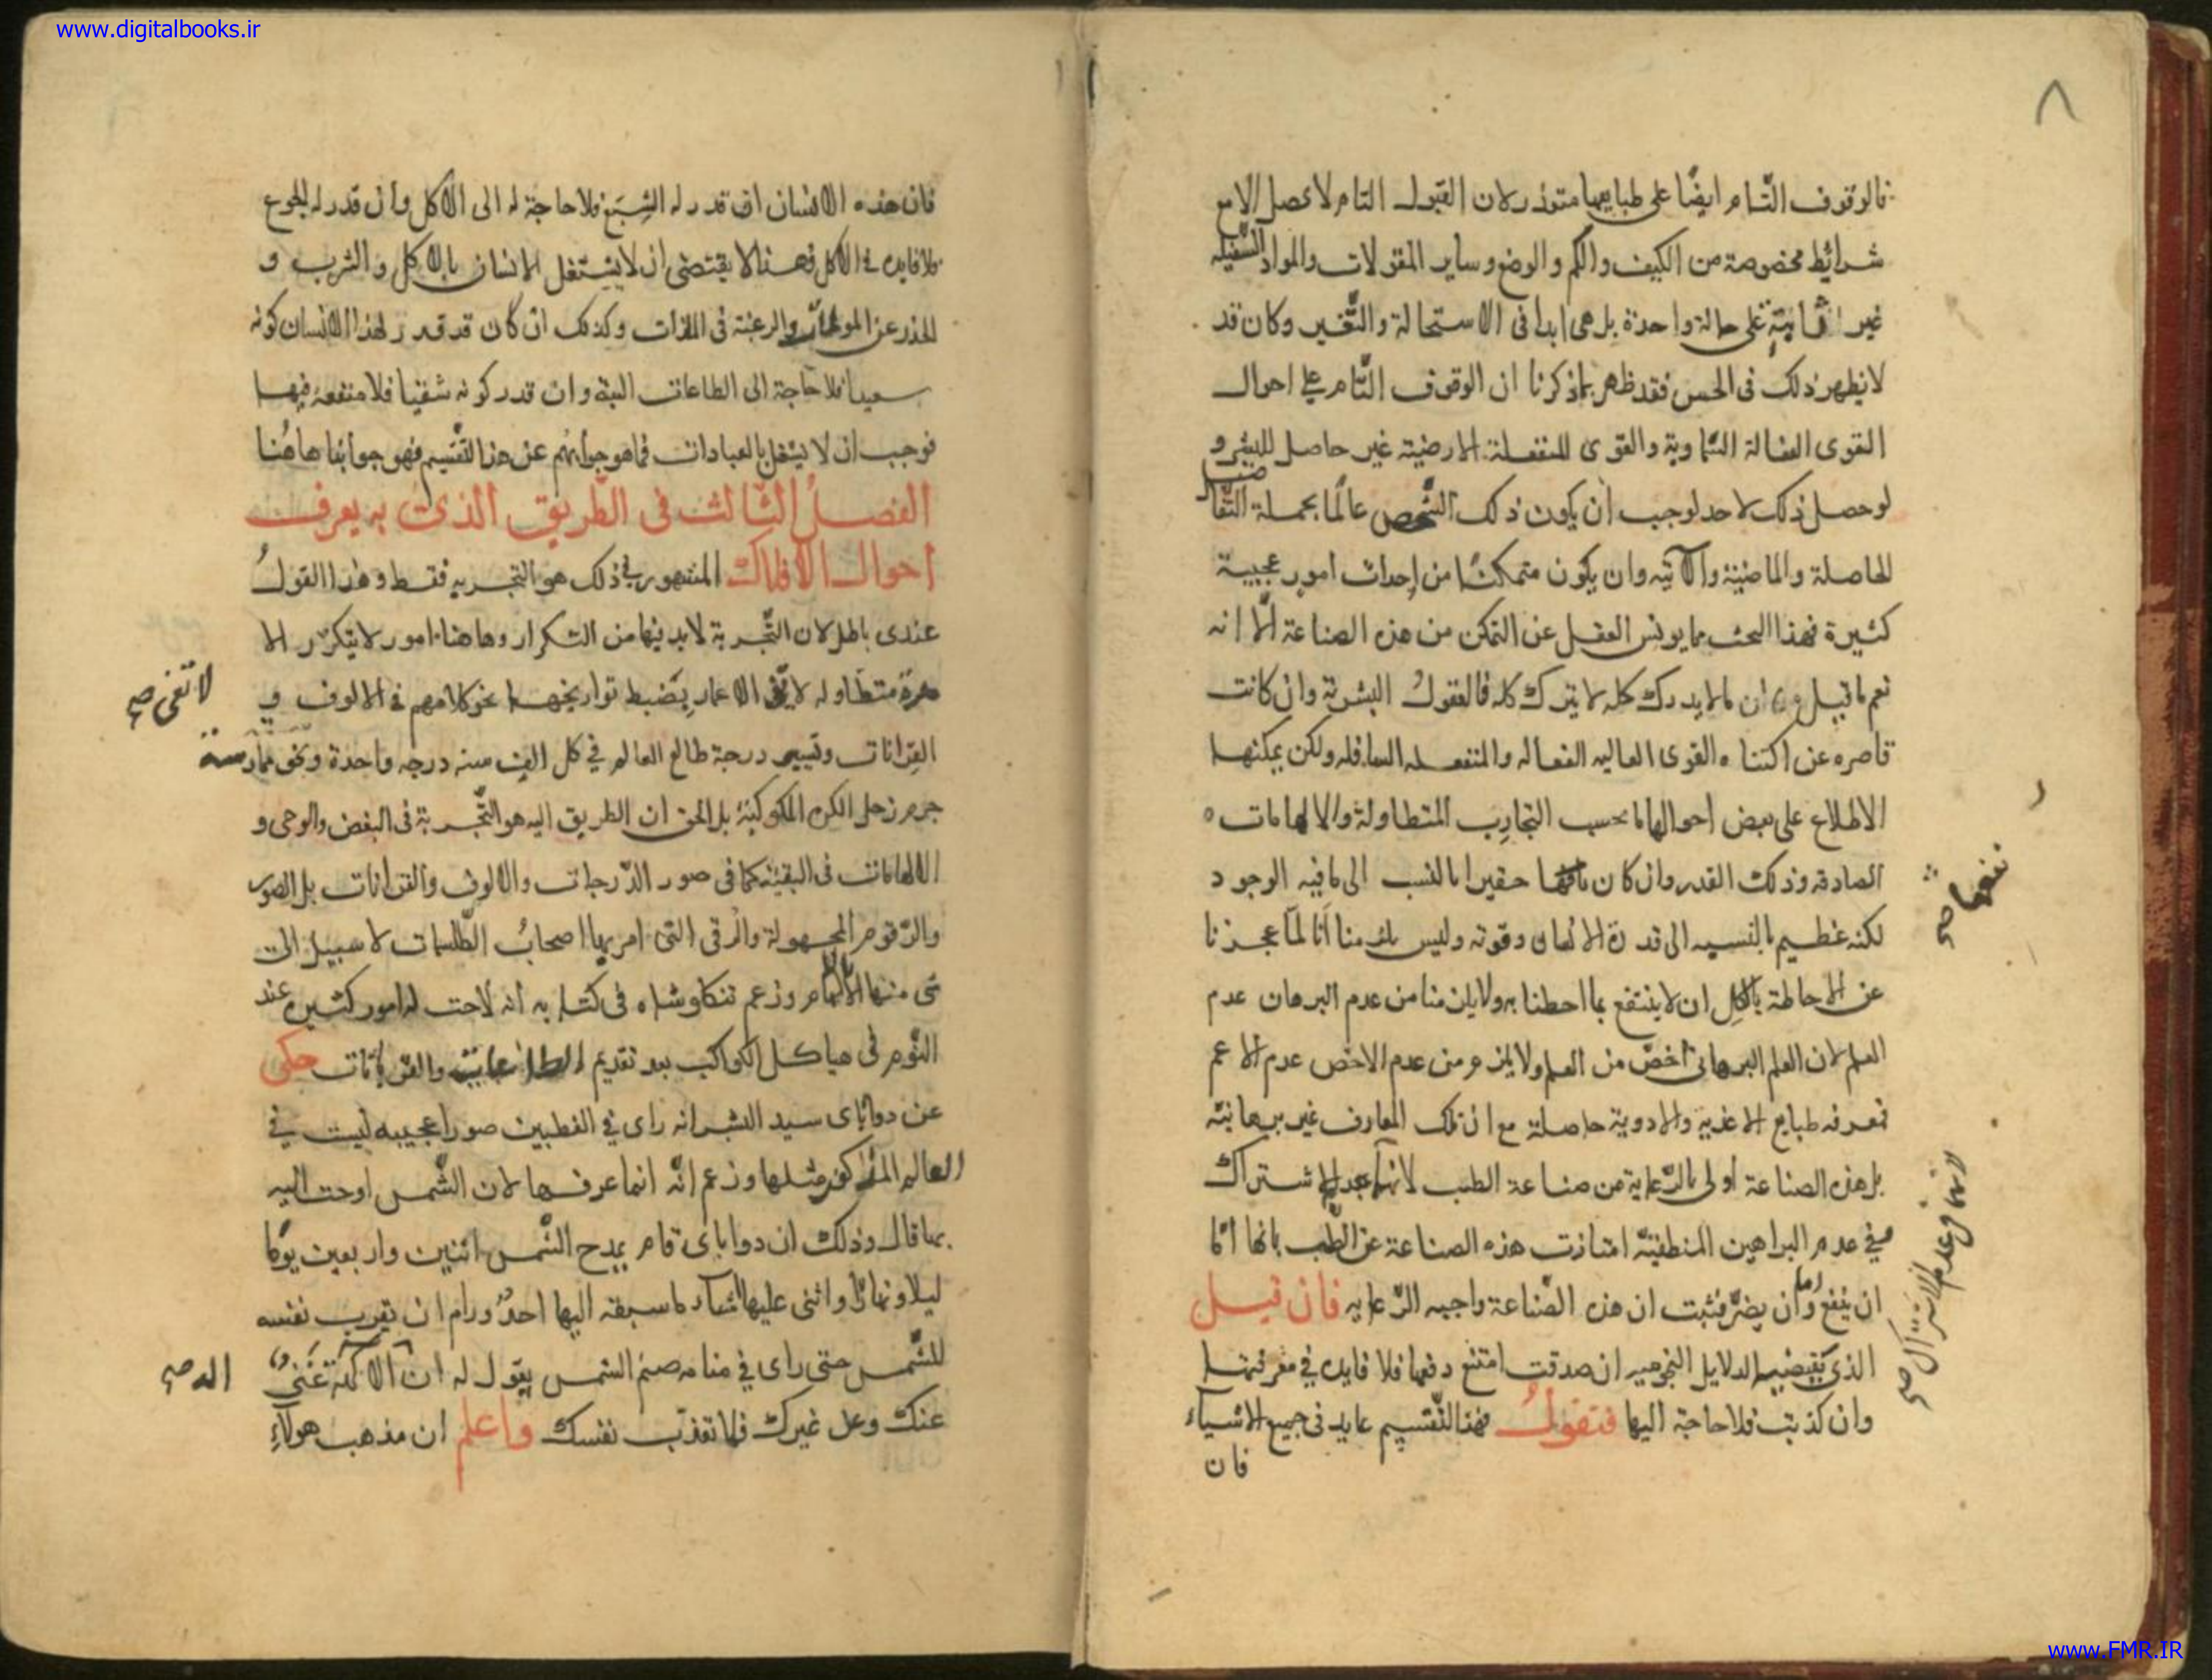 www.digitalbooks.ir
٨
فالوقوف التام ايضًا على طبايعها متعذر لان القبول التام لا يحصل الا مع
شرائط مخصوصة من الكيف والكم والوضع وساير المقولات والمواد السفلية
غير ثابتة على حالة واحدة بل هى ابدا فى الاستحالة والتغير وكان قد
لا يظهر ذلك فى الحس فقد ظهر بما ذكرنا ان الوقوف التام على احوال
القوى الفعالة السماوية والقوى المنفعلة الارضية غير حاصل للبشر و
لو حصل ذلك لاحد لوجب ان يكون ذلك الشخص عالمًا بجملة التفاصيل
الحاصلة والماضية والآتيه وان يكون متمكنًا من احداث امور عجيبة
كثيرة فهذا البحث مما يويس العقل عن التمكن من هذه الصناعة الا انه
نعم ما قيل ان ما لا يدرك كله لا يترك كله فالعقول البشرية وان كانت
قاصره عن اكتناه القوى العاليه الفعاله والمنفعله السافله ولكن يمكنها
الاطلاع على بعض احوالها بحسب التجارب المتطاولة والالهامات
الصادقه وذلك القدر وان كان حقيرا بالنسب الى ما فيه الوجود
لكنه عظيم بالنسبه الى قدرة الانسان وقوته وليس يلزمنا انا لما عجزنا
عن الاحاطة بالكل ان لا ينتفع بما احطنا به ولا يلزمنا من عدم البرهان عدم
العلم لان العلم البرهانى اخص من العلم ولا يلزم من عدم الاخص عدم الاعم
فمعرفه طبايع الاغذيه والادوية حاصلة مع ان تلك المعارف غير برهانيه
بل هذه الصناعة اولى بالرعاية من صناعة الطب لانهما بعد الاشتراك
فى عدم البراهين المنطقية امتازت هذه الصناعة عن الطب بانها اما
ان ينفع واما ان يضر فثبت ان هذه الصناعة واجبه الرعايه فان قيل
الذى يقتضيه الدلايل النجوميه ان صدقت امتنع دفعها فلا فايده فى معرفتها
وان كذبت فلا حاجة اليها فنقول فهذا التقسيم عايد فى جميع الاشياء
فان
نفعها صح
لانهما فى عدم الاشتراك صح
فان هذه الانسان ان قدر له الشبع فلا حاجة له الى الاكل وان قدر له الجوع
فلا فايده فى الاكل فهذا لا يقتضى ان لا يشتغل الانسان بالاكل والشرب و
الحذر عن الموذيات والرغبة فى اللذات وكذلك ان كان قد قدر لهذا الانسان كونه
سعيدا فلا حاجة الى الطاعات البتة وان قدر كونه شقيا فلا منفعة فيها
فوجب ان لا يشتغل بالعبادات فما هو جوابهم عن هذا التقسيم فهو جوابنا هاهنا
الفصل الثالث فى الطريق الذى به يعرف
احوال الافلاك المشهور فى ذلك هو التجربه فقط وهذا القول
عندى باطل لان التجربة لا بد فيها من التكرار وهاهنا امور لا يتكرر الا
مدة متطاوله لا يفى الاعمار بضبط تواريخها نحو كلامهم فى الالوف و
القرانات وتسيير درجة طالع العالم فى كل الف سنه درجه واحدة ونحو ممارسة
جرم زحل الكره المكوكبة بل الحق ان الطريق اليه هو التجربة فى البعض والوحى و
الالهامات فى البقية كما فى صور الدرجات والالوف والقرانات بل الصور
والرقوم المجهولة والرقى التى امر بها اصحاب الطلسمات لا سبيل الى
شى منها الا الالهام وزعم تنكلوشاه فى كتابه انه لاحت له امور كثيره عند
النوم فى هياكل الكواكب بعد تقديم الطاعات والقربانات حكى
عن دواناى سيد البشر انه راى فى القطبين صورا عجيبه ليست فى
العالم المذكور مثلها وزعم انه انما عرفها لان الشمس اوحت اليه
بما قال وذلك ان دواناى قام يمدح الشمس اثنين واربعين يومًا
ليلا ونهارًا واثنى عليها ثناء ما سبقه اليها احد ورام ان يقرب نفسه
للشمس حتى راى فى منامه صنم الشمس يقول له ان الالهة غنى
عنك وعن غيرك فلا تعذب نفسك واعلم ان مذهب هولاء
لا تفى صح
اله صح
www.FMR.IR